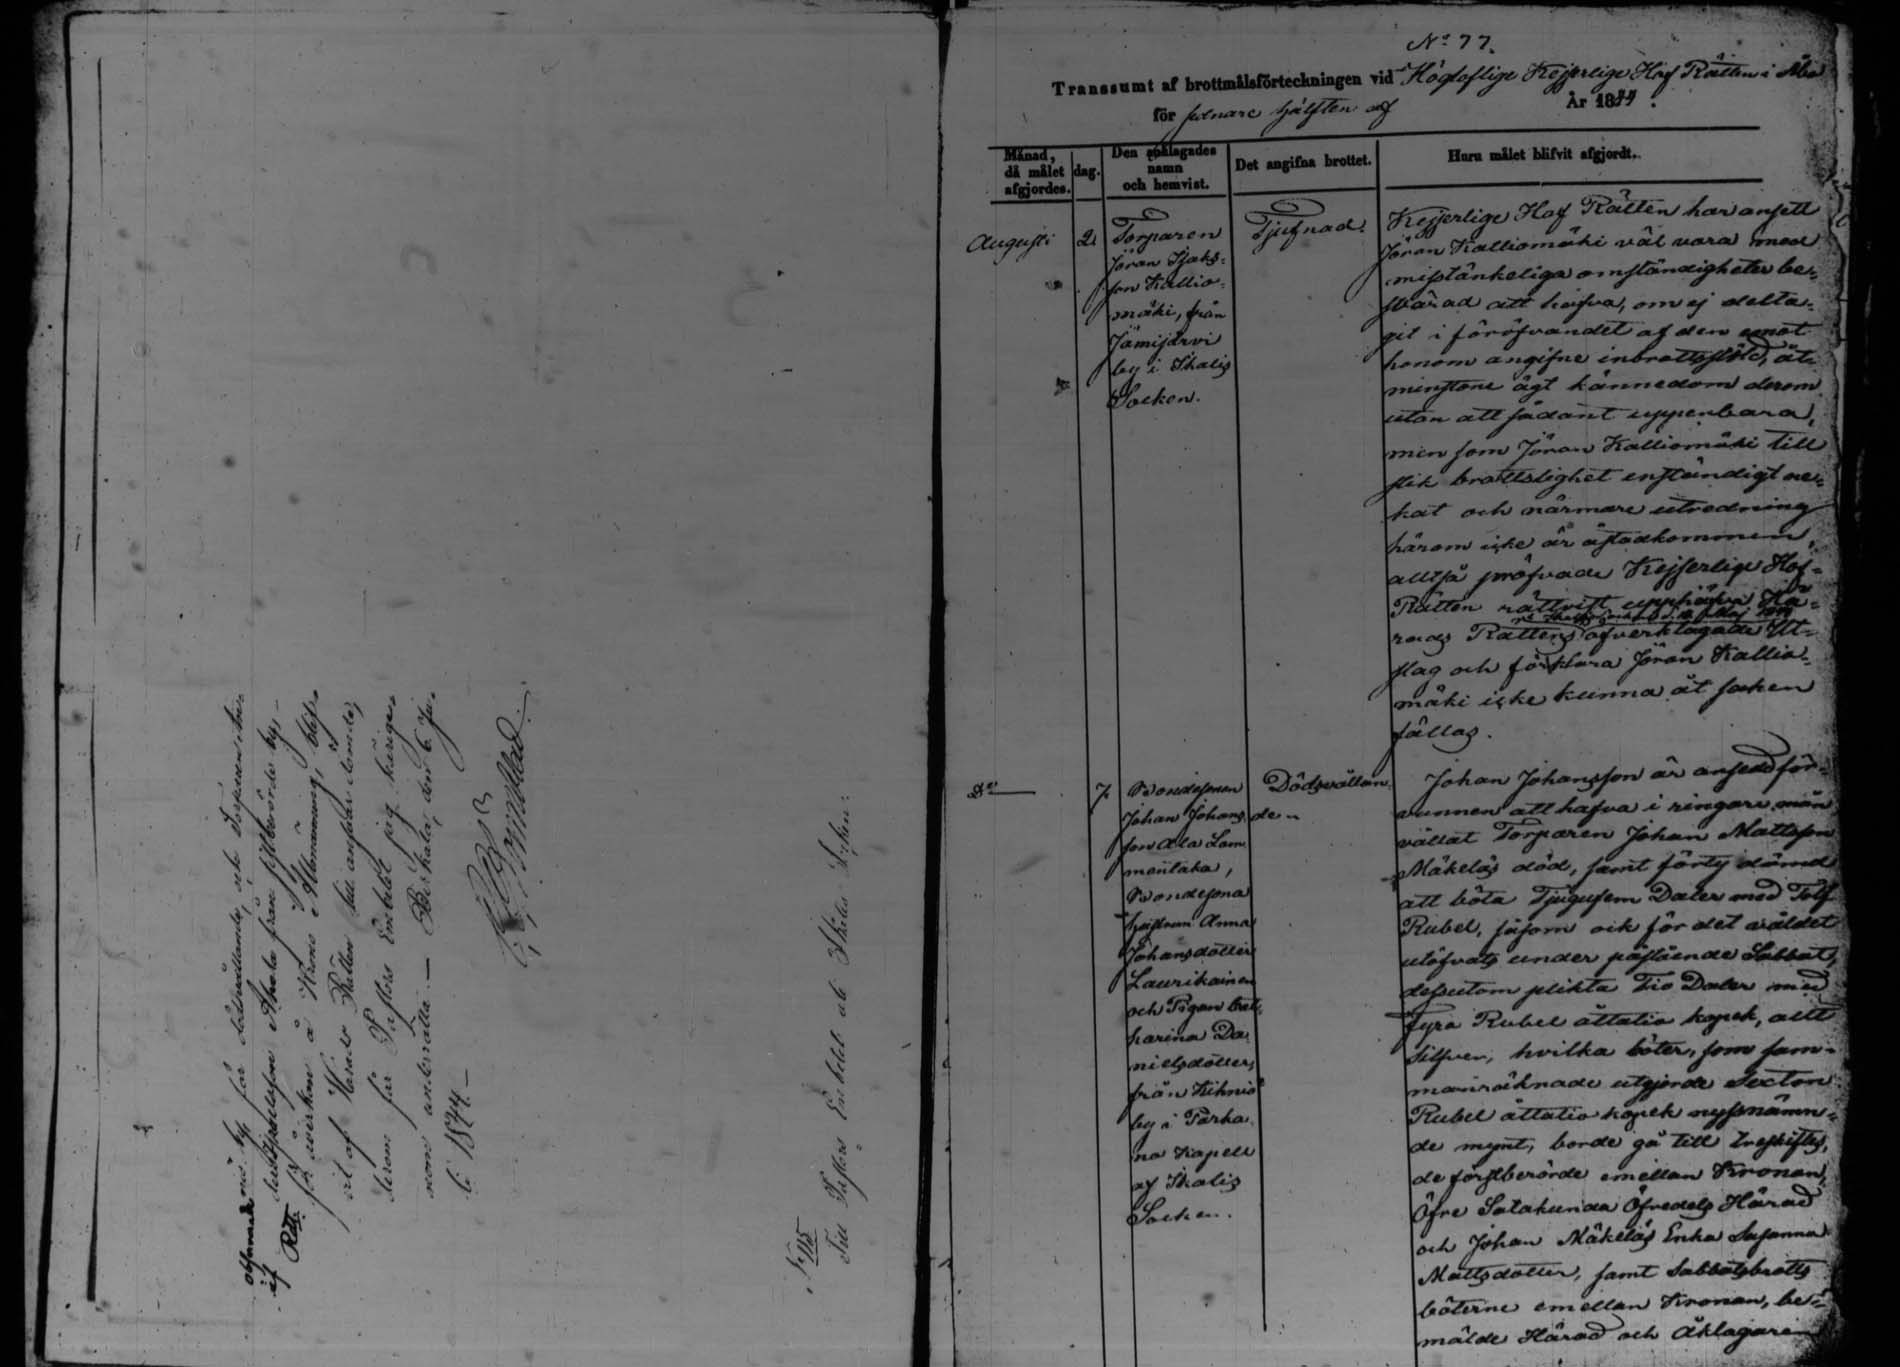 för dödvållande, och Torparen
son Ahola från
för åverkan å Krono Allmänning, blif-
vit af Härads Rätten
derom får Pastors Embetet jag härige-
nom underrätta. — Birkala, den 6 Ju-
li 1844. —
Till Pastors Embetet uti Ikalis Socken.
No 77.
Transsumt af brottmålsförteckningen vid Högloflige Kejserlige Hof Rätten i Åbo
för senare hälften af År 1844.
Månad,
då målet
afgjordes.
dag.
Den anklagades
namn
och hemvist.
Det angifna brottet.
Huru målet blifvit afgjordt.
Augusti
2.
Torparen
Jöran Isaks-
son Kallio-
mäki, från
Jämijärvi
by i Ikalis
Socken.
Tjufnad.
Kejserlige Hof Rätten har ansett
Jöran Kalliomäki väl vara med
misstänkeliga omständigheter be-
svärad att hafva, om ej delta-
git i föröfvandet af den emot
honom angifne inbrottsstöld, åt-
minstone ägt kännedom derom
utan att sådant uppenbara,
men som Jöran Kalliomäki till
slik brottslighet enständigt ne-
kat och närmare utredning
härom icke är åstadkommen,
alltså pröfvade Kejserlige Hof-
Rätten rättvist upphäfva Hä-
rads Rättens öfverklagade Ut-
slag och förklara Jöran Kallio-
mäki icke kunna åt saken
fällas.
Do
7.
Bondesonen
Johan Johans-
son Ala Lam-
minlaka,
Bondesona
hustrun Anna
Johansdotter
Laurikainen
och Pigan Cat-
harina Da-
nielsdotter,
från Kihniö
by i Parka-
no Kapell
af Ikalis
Socken.
Dödsvållan-
de.
Johan Johansson är ansedd för-
vunnen att hafva i ringare mån
vållat Torparen Johan Mattsson
Mäkeläs död, samt förty dömd
att böta Tjugufem Daler med Tolf
Rubel, såsom ock för det våldet
utöfvats under påstående Sabbat,
dessutom plikta Tio Daler med
Fyra Rubel åttatio kopek, allt
Silfver, hvilka böter, som sam-
manräknade utgjorde Sexton
Rubel åttatio kopek nyssnämn-
de mynt, borde gå till treskiftes,
de förstberörde emellan Kronan,
Öfre Satakunda Öfredels Härad
och Johan Mäkeläs Enka Susanna
Mattsdotter, samt Sabbatsbrotts
böterne emellan Kronan, be-
mälde Härad och Åklagaren